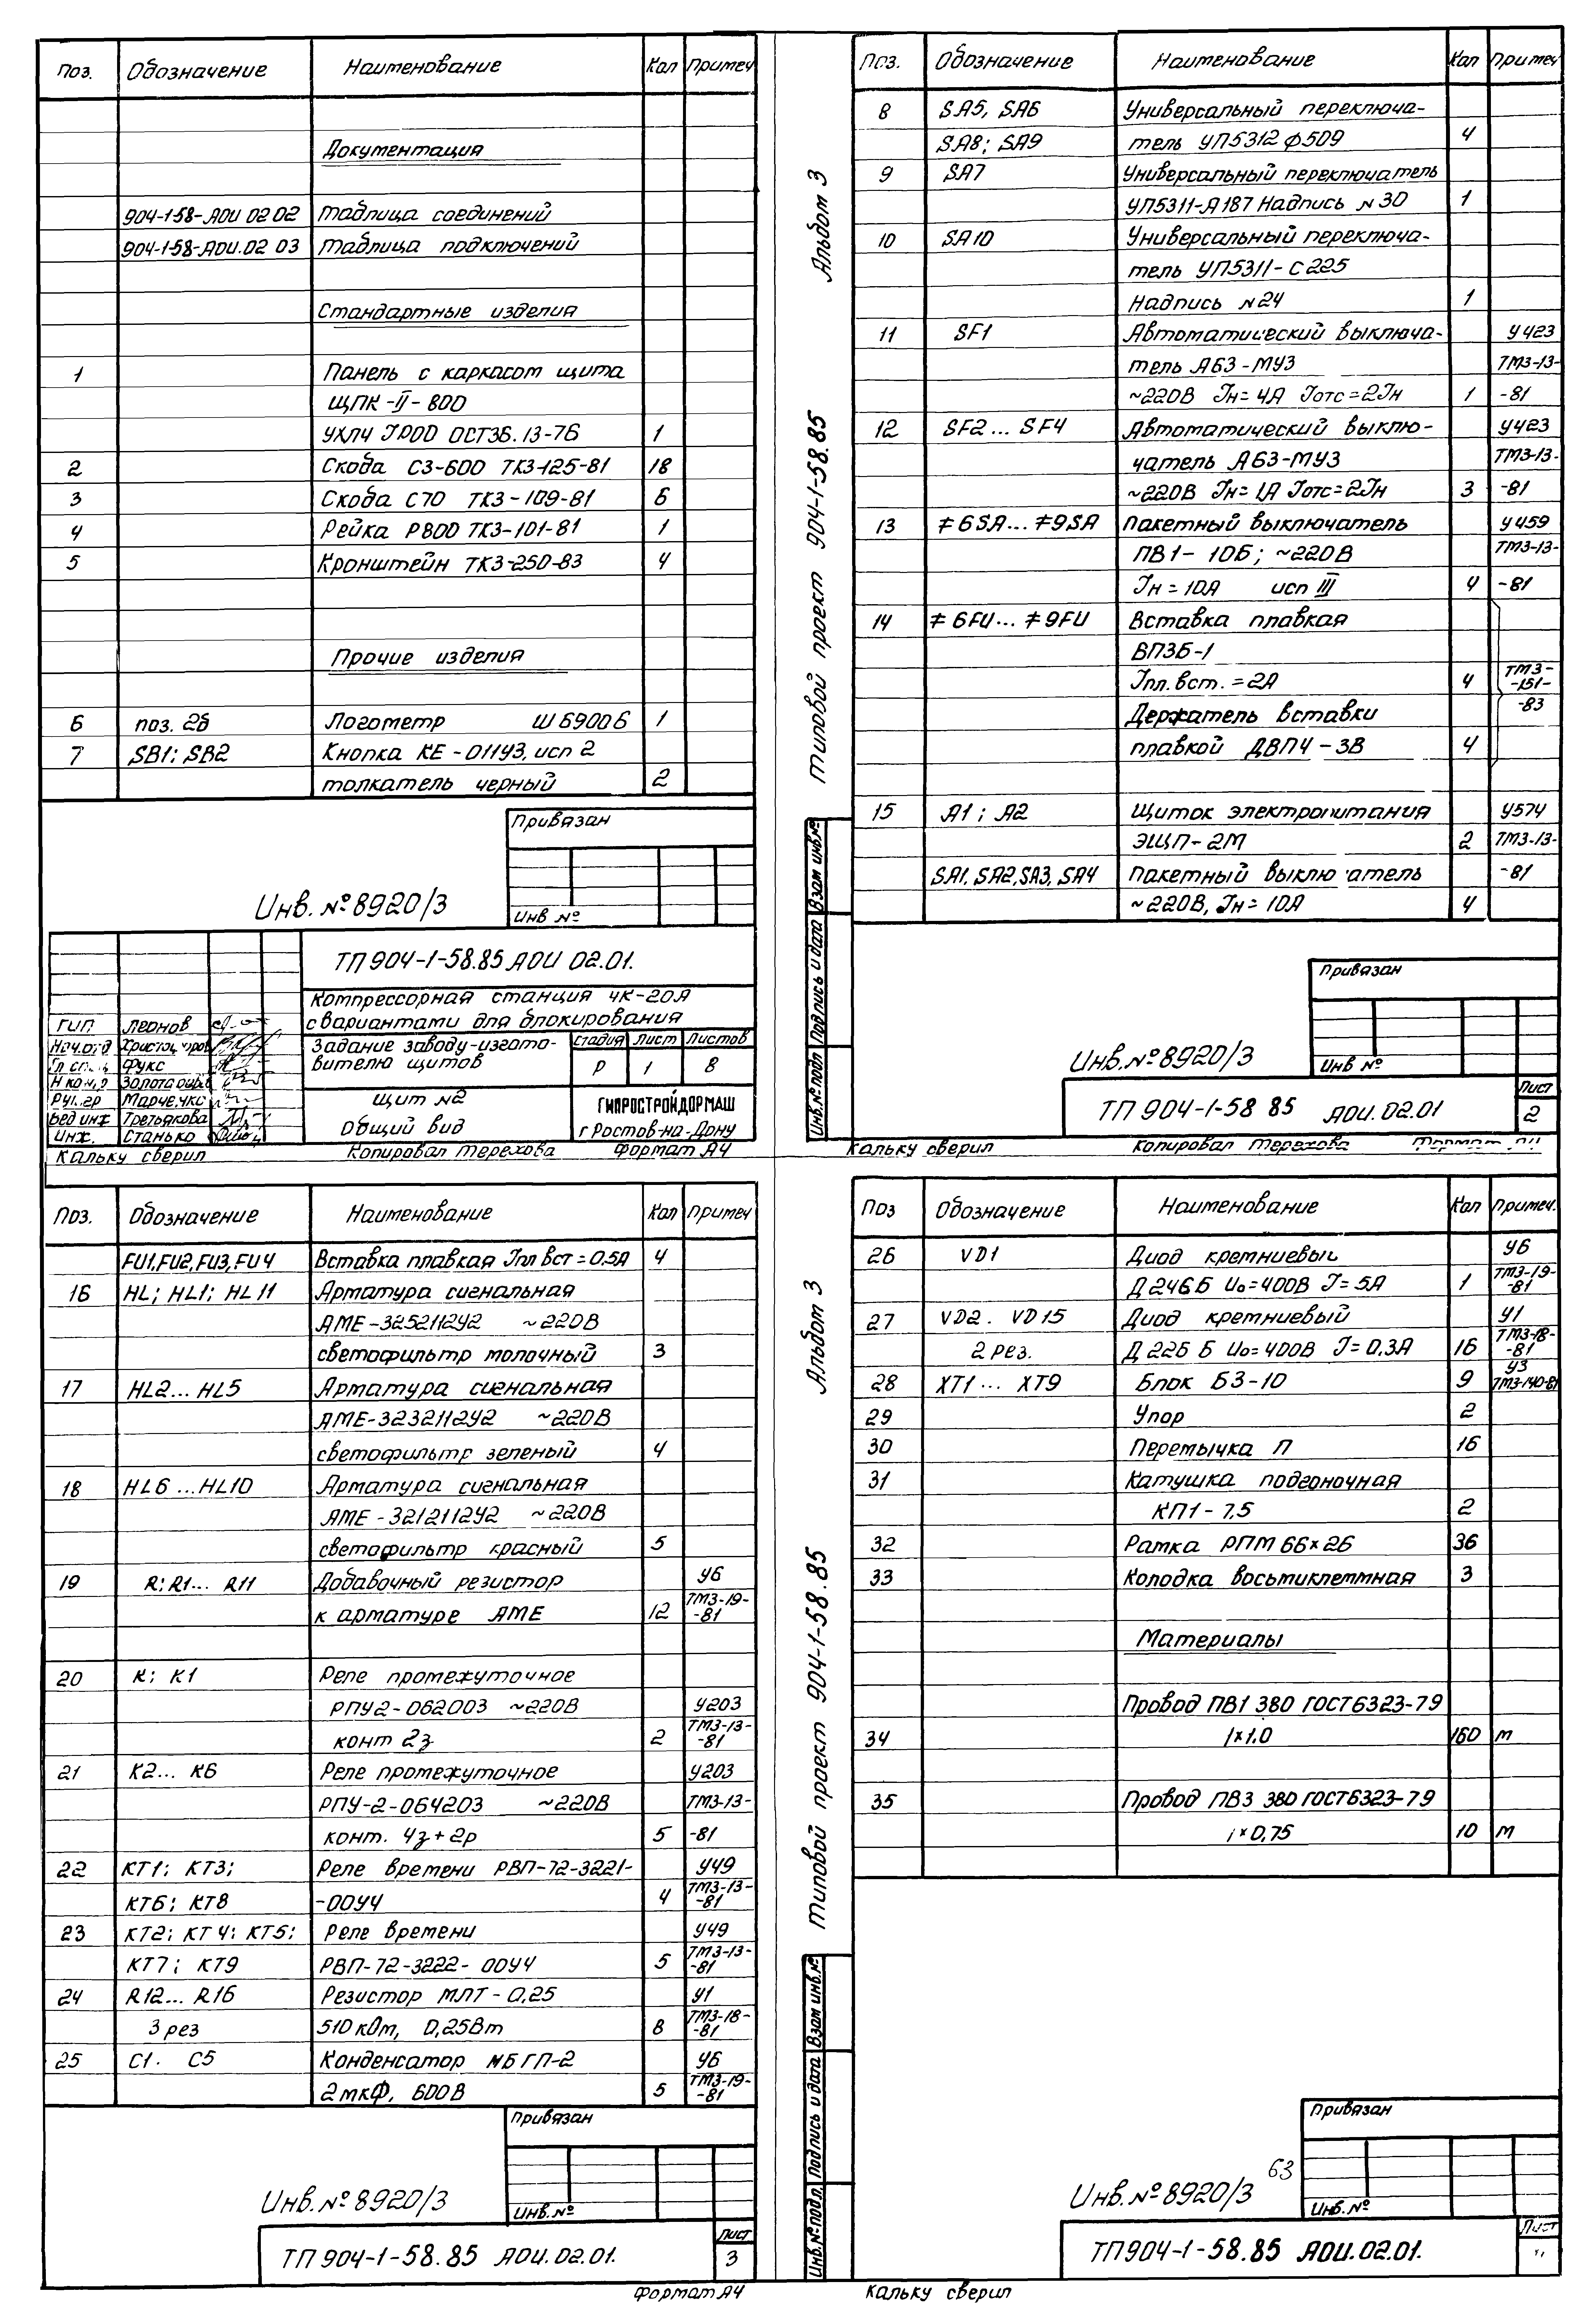 Поз. Обозначение Наименование Кол Примеч
Документация
904-1-58-АОИ 02 02 Таблица соединений
904-1-58-АОИ.02 03 Таблица подключений
Стандартные изделия
1 Панель с каркасом щита
ЩПК-II-800
УХЛ4 IР00 ОСТ36.13-76 1
2 Скоба С3-600 ТК3-125-81 18
3 Скоба С70 ТК3-109-81 6
4 Рейка Р800 ТК3-101-81 1
5 Кронштейн ТК3-250-83 4
Прочие изделия
6 поз. 2б Логометр Ш 69006 1
7 SB1; SB2 Кнопка КЕ-011У3, исп 2
толкатель черный 2
Привязан
Инв №
Инв. № 8920/3
ТП 904-1-58.85 АОИ 02.01.
Компрессорная станция 4К-20А
с вариантами для блокирования
Задание заводу-изгото-
вителю щитов
Стадия Лист Листов
Р 1 8
Щит №2
Общий вид
ГИПРОСТРОЙДОРМАШ
г Ростов-на-Дону
ГИП Леонов
Нач.отд
Фукс
Н контр
Рук.гр Марченко
Вед инж Третьякова
Инж. Станько
Кальку сверил Копировал Терехова Формат А4
Альбом 3
Типовой проект 904-1-58.85
Инв.№ подл Подпись и дата Взам инв.№
Поз. Обозначение Наименование Кол Примеч
8 SA5, SA6 Универсальный переключа-
SA8; SA9 тель УП5312 Ф509 4
9 SA7 Универсальный переключатель
УП5311-А187 Надпись №30 1
10 SA10 Универсальный переключа-
тель УП5311-С225
Надпись №24 1
11 SF1 Автоматический выключа- У423
тель АБ3-МУ3 ТМ3-13-
~220В Iн=4А Iотс=2Iн 1 -81
12 SF2... SF4 Автоматический выклю- У423
чатель АБ3-МУ3 ТМ3-13-
~220В Iн=1А Iотс=2Iн 3 -81
13 ≠6SA...≠9SA Пакетный выключатель У459
ПВ1-10Б; ~220В ТМ3-13-
Iн=10А исп III 4 -81
14 ≠6FU...≠9FU Вставка плавкая
ВП3Б-1
Iпл.вст.=2А 4 ТМ3-
-151-
Держатель вставки -83
плавкой ДВП4-3В 4
15 А1; А2 Щиток электропитания У574
ЭЩП-2М 2 ТМ3-13-
SA1, SA2, SA3, SA4 Пакетный выключатель -81
~220В, Iн=10А 4
Привязан
Инв №
Инв.№ 8920/3
ТП 904-1-58 85 АОИ.02.01
Лист
2
Кальку сверил Копировал Терехова Формат А4
Поз. Обозначение Наименование Кол Примеч
FU1, FU2, FU3, FU4 Вставка плавкая Iпл вст=0.5А 4
16 HL; HL1; HL11 Арматура сигнальная
АМЕ-325211292 ~220В
светофильтр молочный 3
17 HL2... HL5 Арматура сигнальная
АМЕ-3232112У2 ~220В
светофильтр зеленый 4
18 HL6...HL10 Арматура сигнальная
АМЕ-3212112У2 ~220В
светофильтр красный 5
19 R; R1... R11 Добавочный резистор У6
к арматуре АМЕ 12 ТМ3-19-
-81
20 К; К1 Реле промежуточное
РПУ2-062003 ~220В У203
конт 2з 2 ТМ3-13-
-81
21 К2... К6 Реле промежуточное У203
РПУ-2-064203 ~220В ТМ3-13-
конт. 4з+2р 5 -81
22 КТ1; КТ3; Реле времени РВП-72-3221- У49
КТ6; КТ8 -00У4 4 ТМ3-13-
-81
23 КТ2; КТ4; КТ5; Реле времени У49
КТ7; КТ9 РВП-72-3222-00У4 5 ТМ3-13-
-81
24 R12... R16 Резистор МЛТ-0,25 У1
3 рез 510 кОм, 0,25Вт 8 ТМ3-18-
-81
25 С1. С5 Конденсатор МБГП-2 У6
2 мкФ, 600В 5 ТМ3-19-
-81
Привязан
Инв.№
Инв.№ 8920/3
ТП 904-1-58.85 АОИ.02.01.
Лист
3
Формат А4
Альбом 3
Типовой проект 904-1-58.85
Инв.№ подл. Подпись и дата Взам инв.№
Поз Обозначение Наименование Кол Примеч.
26 VD1 Диод кремниевый У6
Д246Б Uо=400В I=5А 1 ТМ3-19-
-81
27 VD2. VD15 Диод кремниевый У1
2 рез. Д226Б Uо=400В I=0,3А 16 ТМ3-18-
-81
28 ХТ1... ХТ9 Блок Б3-10 9 У3
ТМ3-140-81
29 Упор 2
30 Перемычка П 16
31 Катушка подгоночная
КП1-7,5 2
32 Рамка РПМ 66×26 36
33 Колодка восьмиклеммная 3
Материалы
Провод ПВ1 380 ГОСТ6323-79
34 1×1.0 160 м
35 Провод ПВ3 380 ГОСТ6323-79
1×0,75 10 м
Привязан
Инв.№
63
Инв.№ 8920/3
ТП 904-1-58.85 АОИ.02.01.
Лист
Кальку сверил